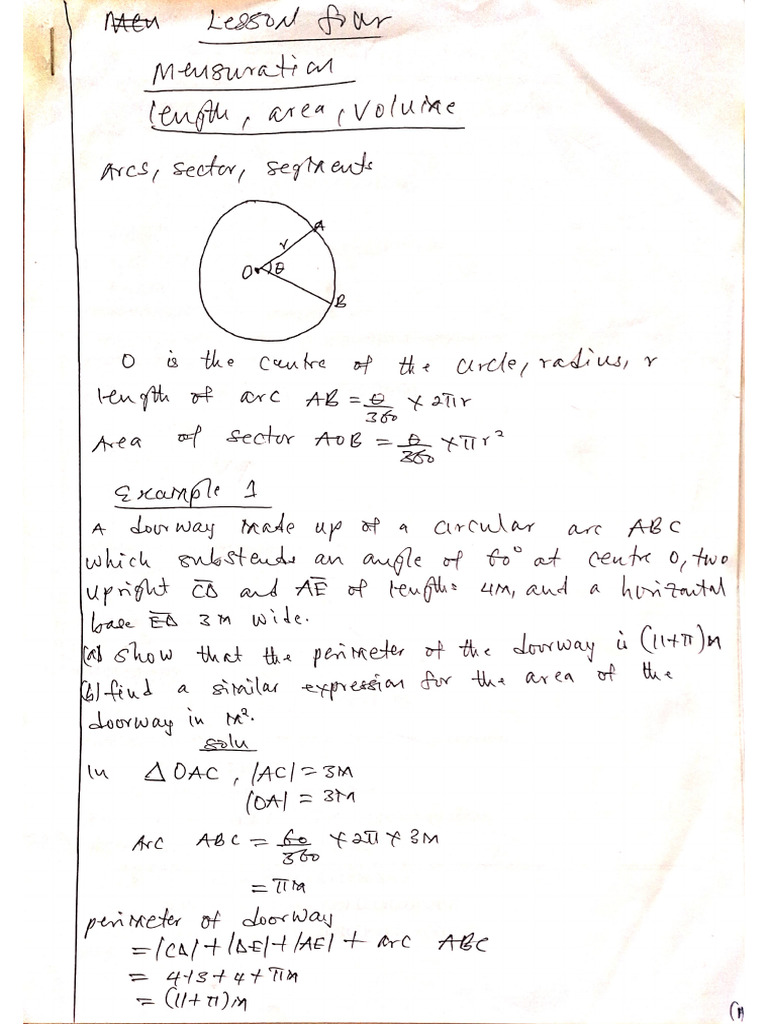 Men Lesson four
Mensuration
length, area, volume
Arcs, sector, segments
A
r
O θ
B
O is the centre of the circle, radius, r
length of arc AB = θ/360 × 2πr
Area of sector AOB = θ/360 × πr²
Example 1
A doorway made up of a circular arc ABC
which substends an angle of 60° at centre O, two
upright CD and AE of length: 4M, and a horizontal
base ED 3M wide.
(a) show that the perimeter of the doorway is (11+π)M
(b) find a similar expression for the area of the
doorway in M².
solu
In △OAC, |AC| = 3M
|OA| = 3M
Arc ABC = 60/360 × 2π × 3M
= πM
perimeter of doorway
= |CD| + |DE| + |AE| + arc ABC
= 4+3+4+πM
= (11+π)M